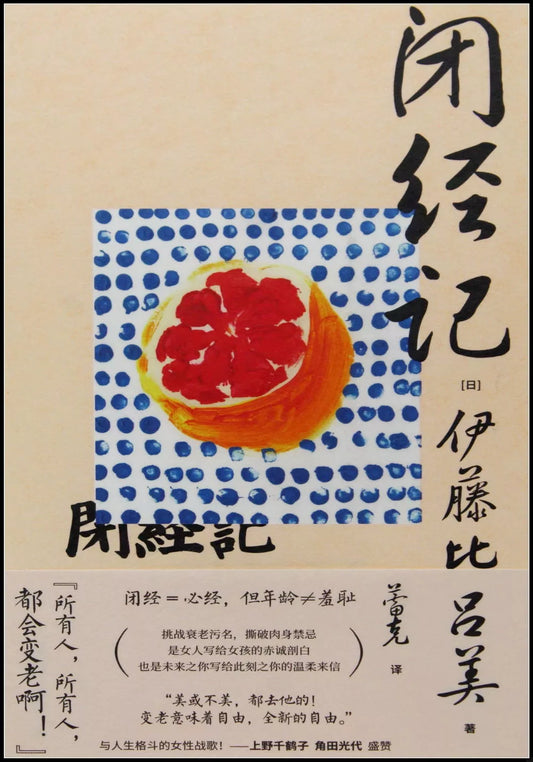 闭经记
[日]
伊藤比吕美
著
蕾克
译
閉経記
『所有人，所有人，
都会变老啊！』
闭经＝必经，但年龄≠羞耻
挑战衰老污名，撕破肉身禁忌
是女人写给女孩的赤诚剖白
也是未来之你写给此刻之你的温柔来信
“美或不美，都去他的！
变老意味着自由，全新的自由。”
与人生格斗的女性战歌！——上野千鹤子 角田光代 盛赞